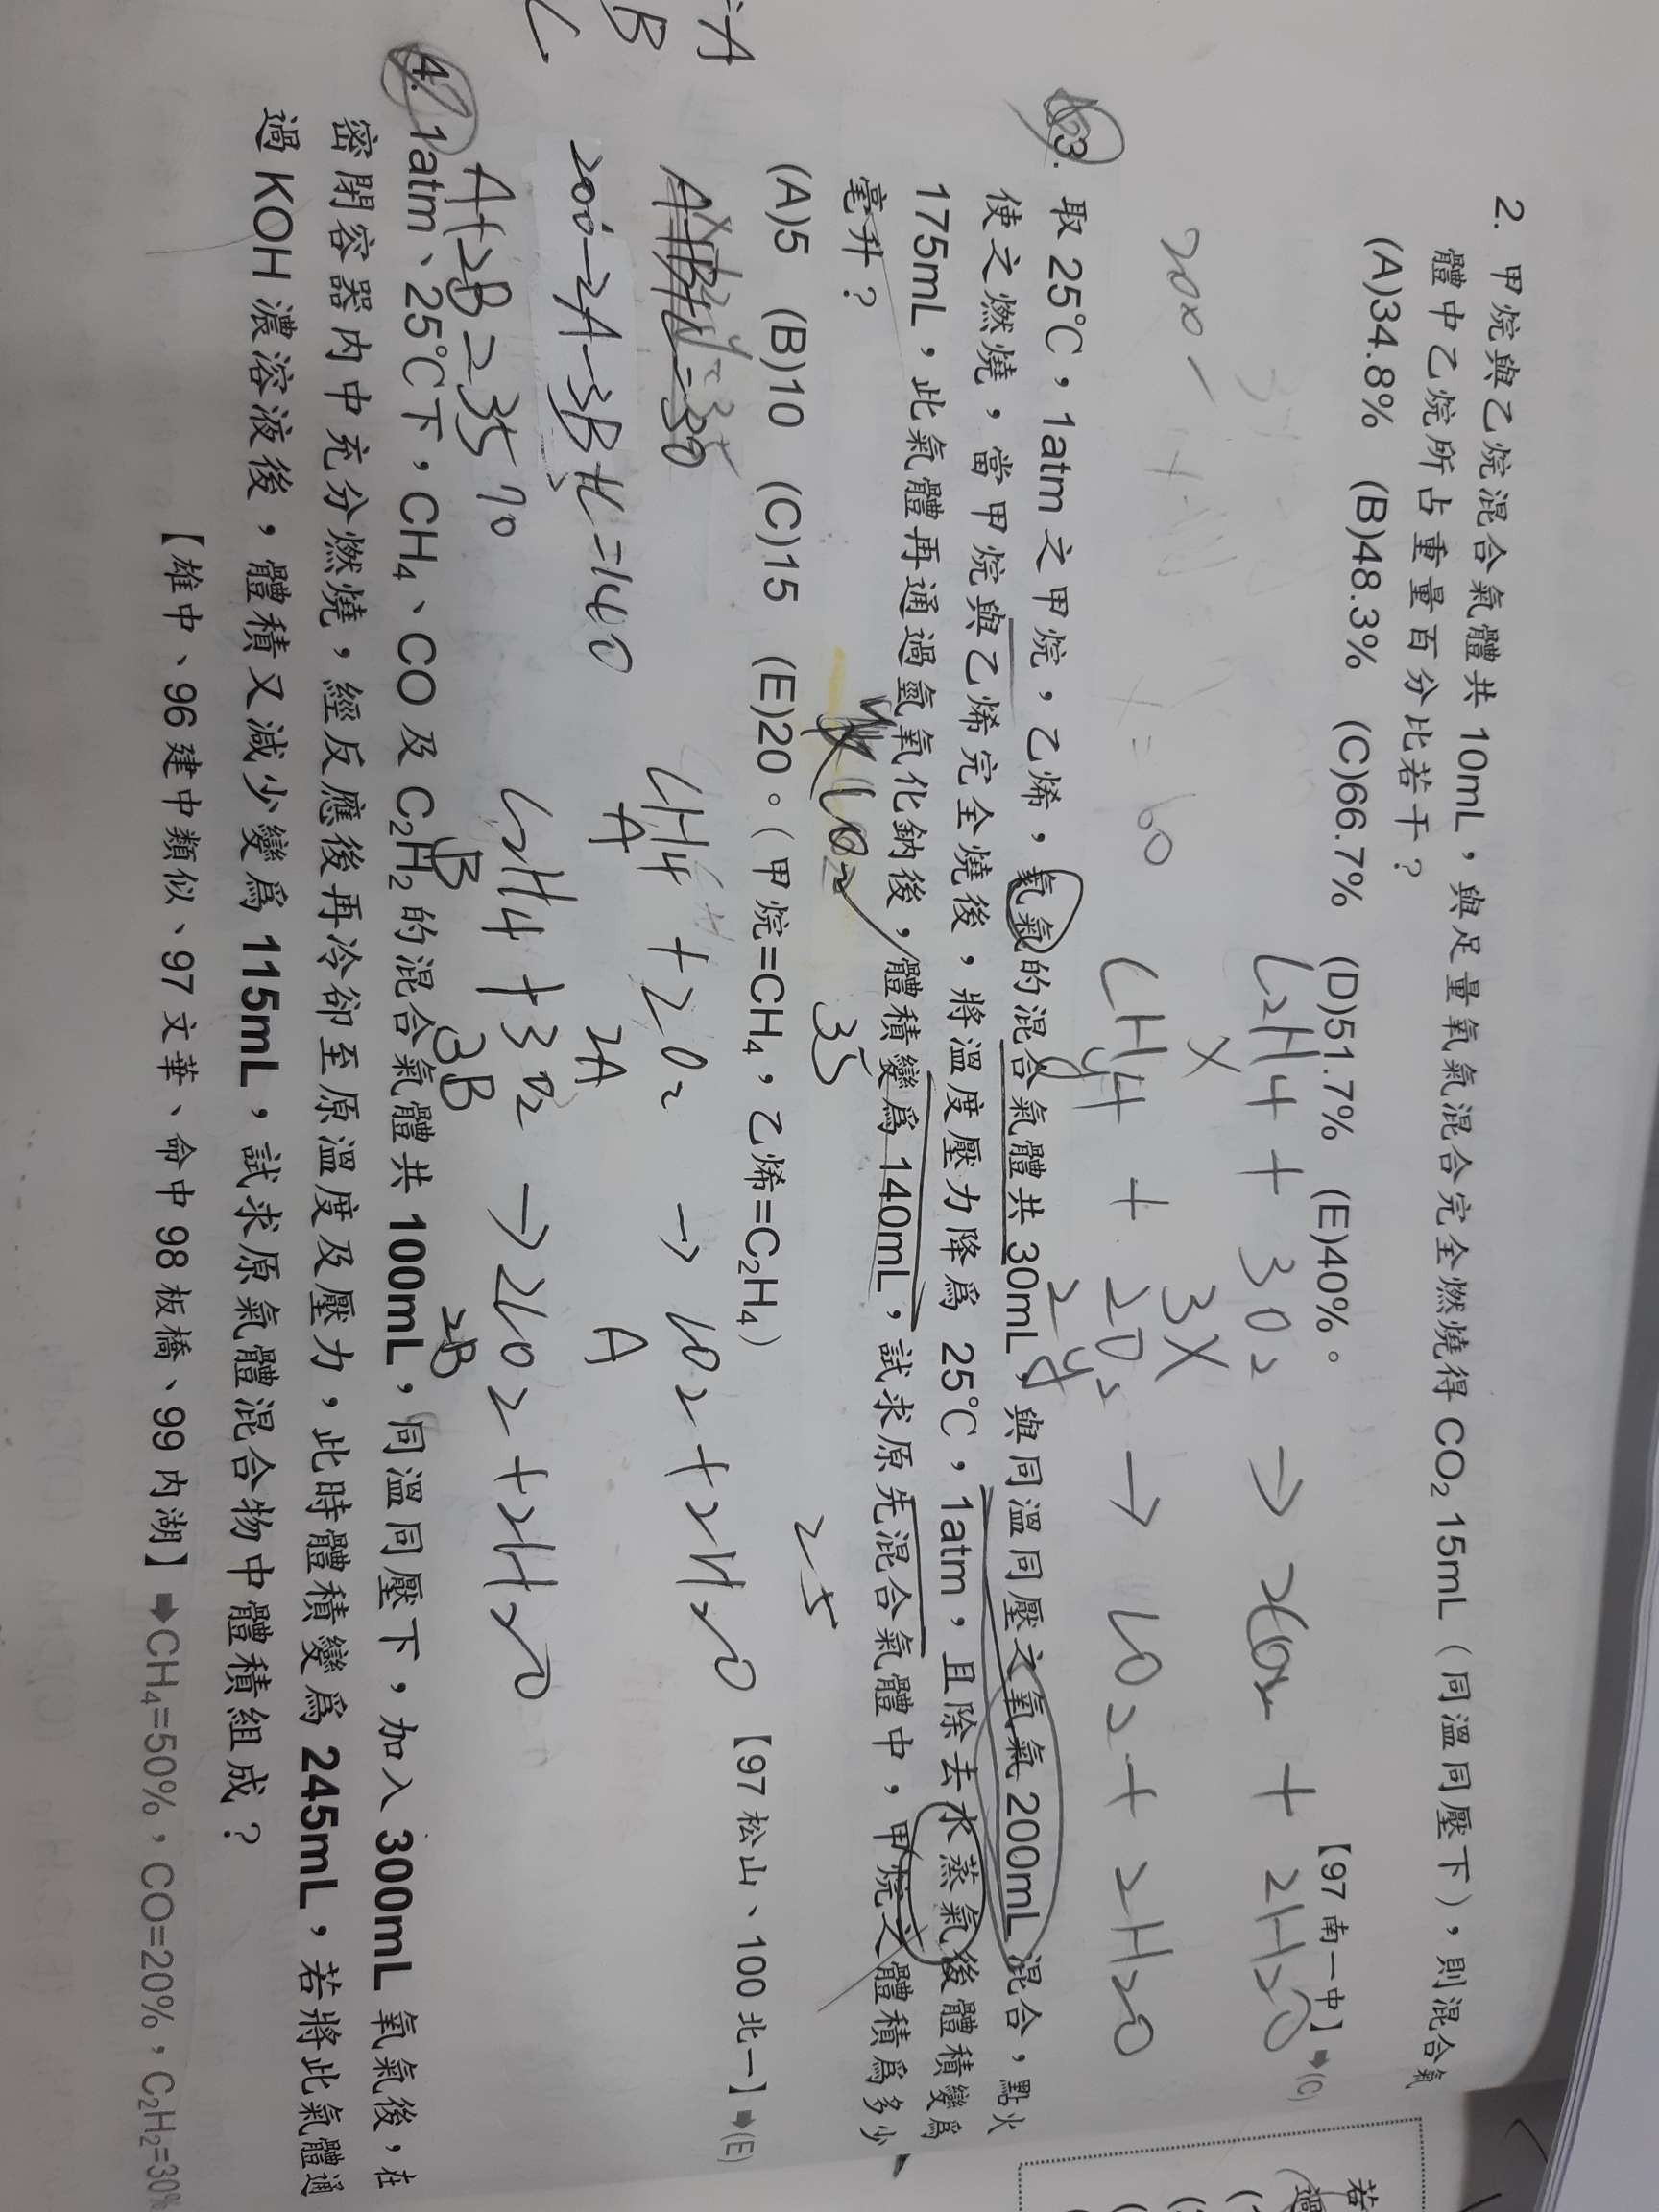 2. 甲烷與乙烷混合氣體共 10mL，與足量氧氣混合完全燃燒得 CO₂ 15mL（同溫同壓下），則混合氣
體中乙烷所占重量百分比若干？
(A)34.8%  (B)48.3%  (C)66.7%  (D)51.7%  (E)40%。
【97 南一中】➡(C)
C₂H₄ + 3O₂ → 2CO₂ + 2H₂O
X 3X
CH₄ + 2O₂ → CO₂ + 2H₂O
y 2y
200 -
= 60
3. 取 25℃，1atm 之甲烷，乙烯，氦氣的混合氣體共 30mL，與同溫同壓之氧氣 200mL 混合，點火
使之燃燒，當甲烷與乙烯完全燒後，將溫度壓力降為 25℃，1atm，且除去水蒸氣後體積變為
175mL，此氣體再通過氫氧化鈉後，體積變為 140mL，試求原先混合氣體中，甲烷之體積為多少
毫升？
CO₂ 35 25
(A)5  (B)10  (C)15  (E)20。（甲烷=CH₄，乙烯=C₂H₄）
【97 松山、100 北一】➡(E)
CH4 + 2O2 → CO2 + 2H2O
A 2A A
200-2A-3B+C=140
C2H4 + 3O2 → 2CO2 + 2H2O
B 3B 2B
A+2B=35 70
-A
B
C
4. 1atm、25℃下，CH₄、CO 及 C₂H₂ 的混合氣體共 100mL，同溫同壓下，加入 300mL 氧氣後，在
密閉容器內中充分燃燒，經反應後再冷卻至原溫度及壓力，此時體積變為 245mL，若將此氣體通
過 KOH 濃溶液後，體積又減少變為 115mL，試求原氣體混合物中體積組成？
【雄中、96 建中類似、97 文華、命中 98 板橋、99 內湖】➡CH₄=50%，CO=20%，C₂H₂=30%
若